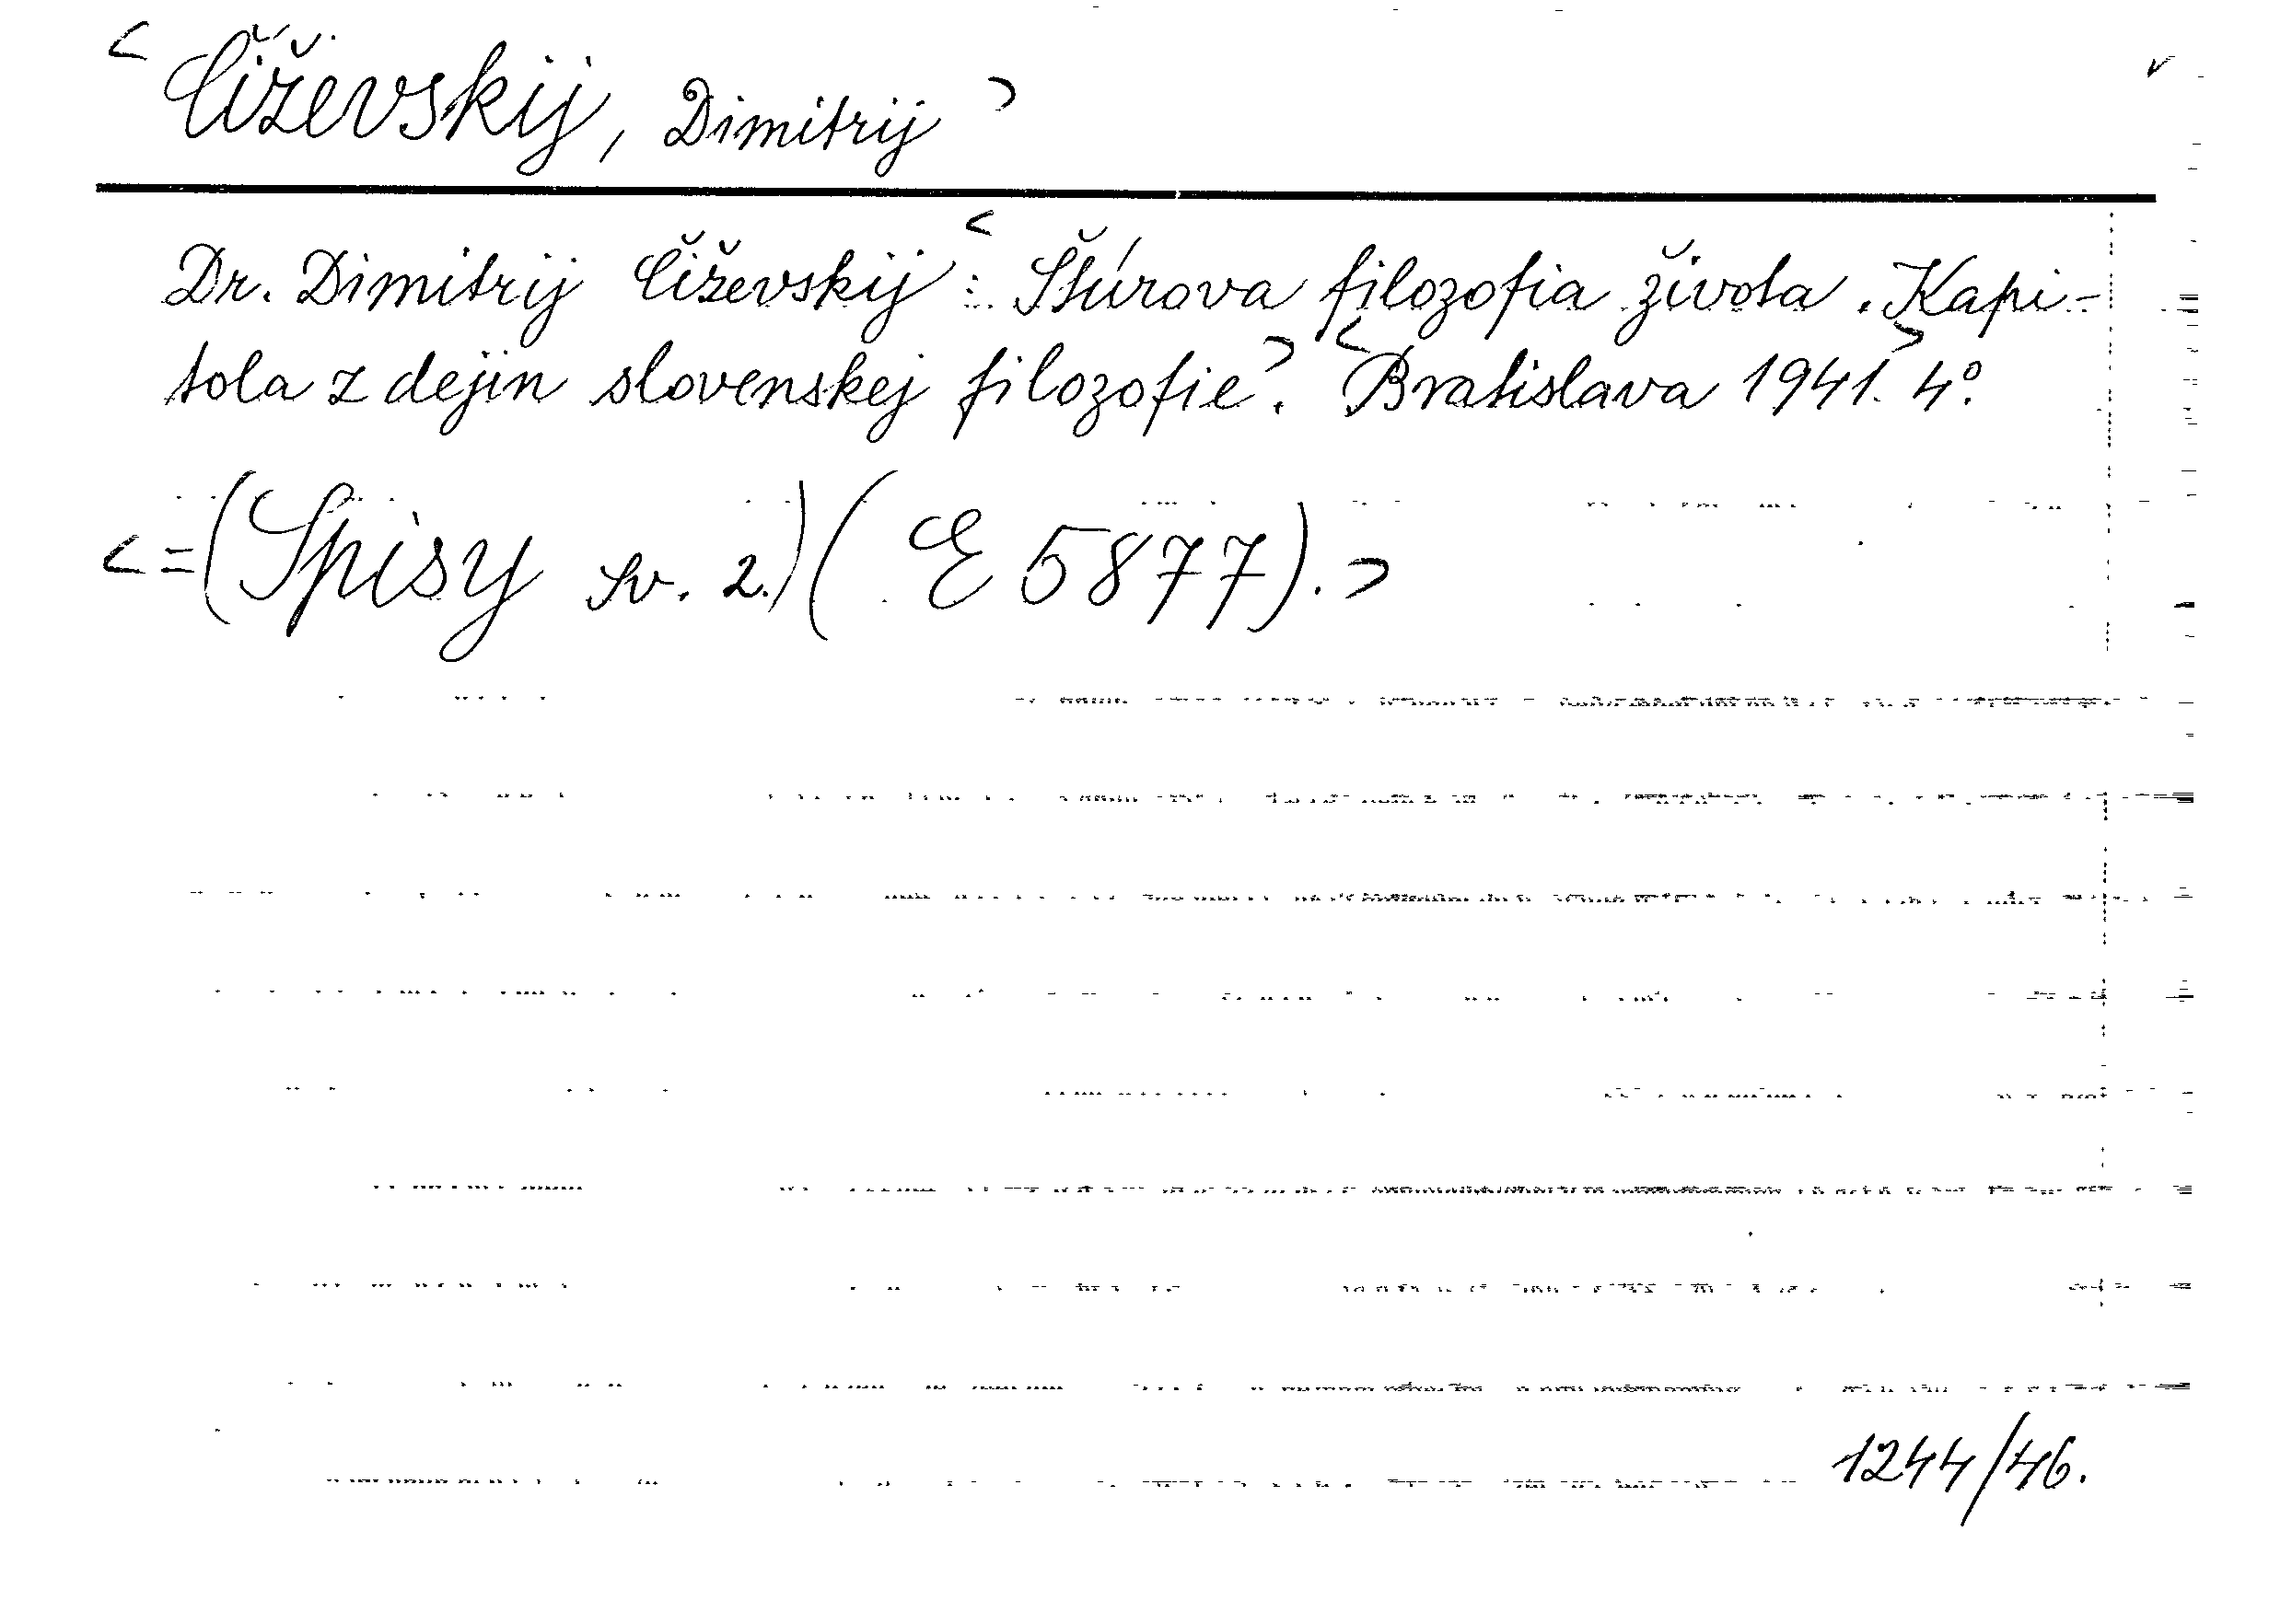 < Čiževskij, Dimitrij >
Dr. Dimitrij Čiževskij: < Štúrova filozofia života. Kapi-
tola z dejin slovenskej filozofie >. < Bratislava 1941. > 4°.
< = (Spisy sv. 2.) ( E 5877). >
1244/46.